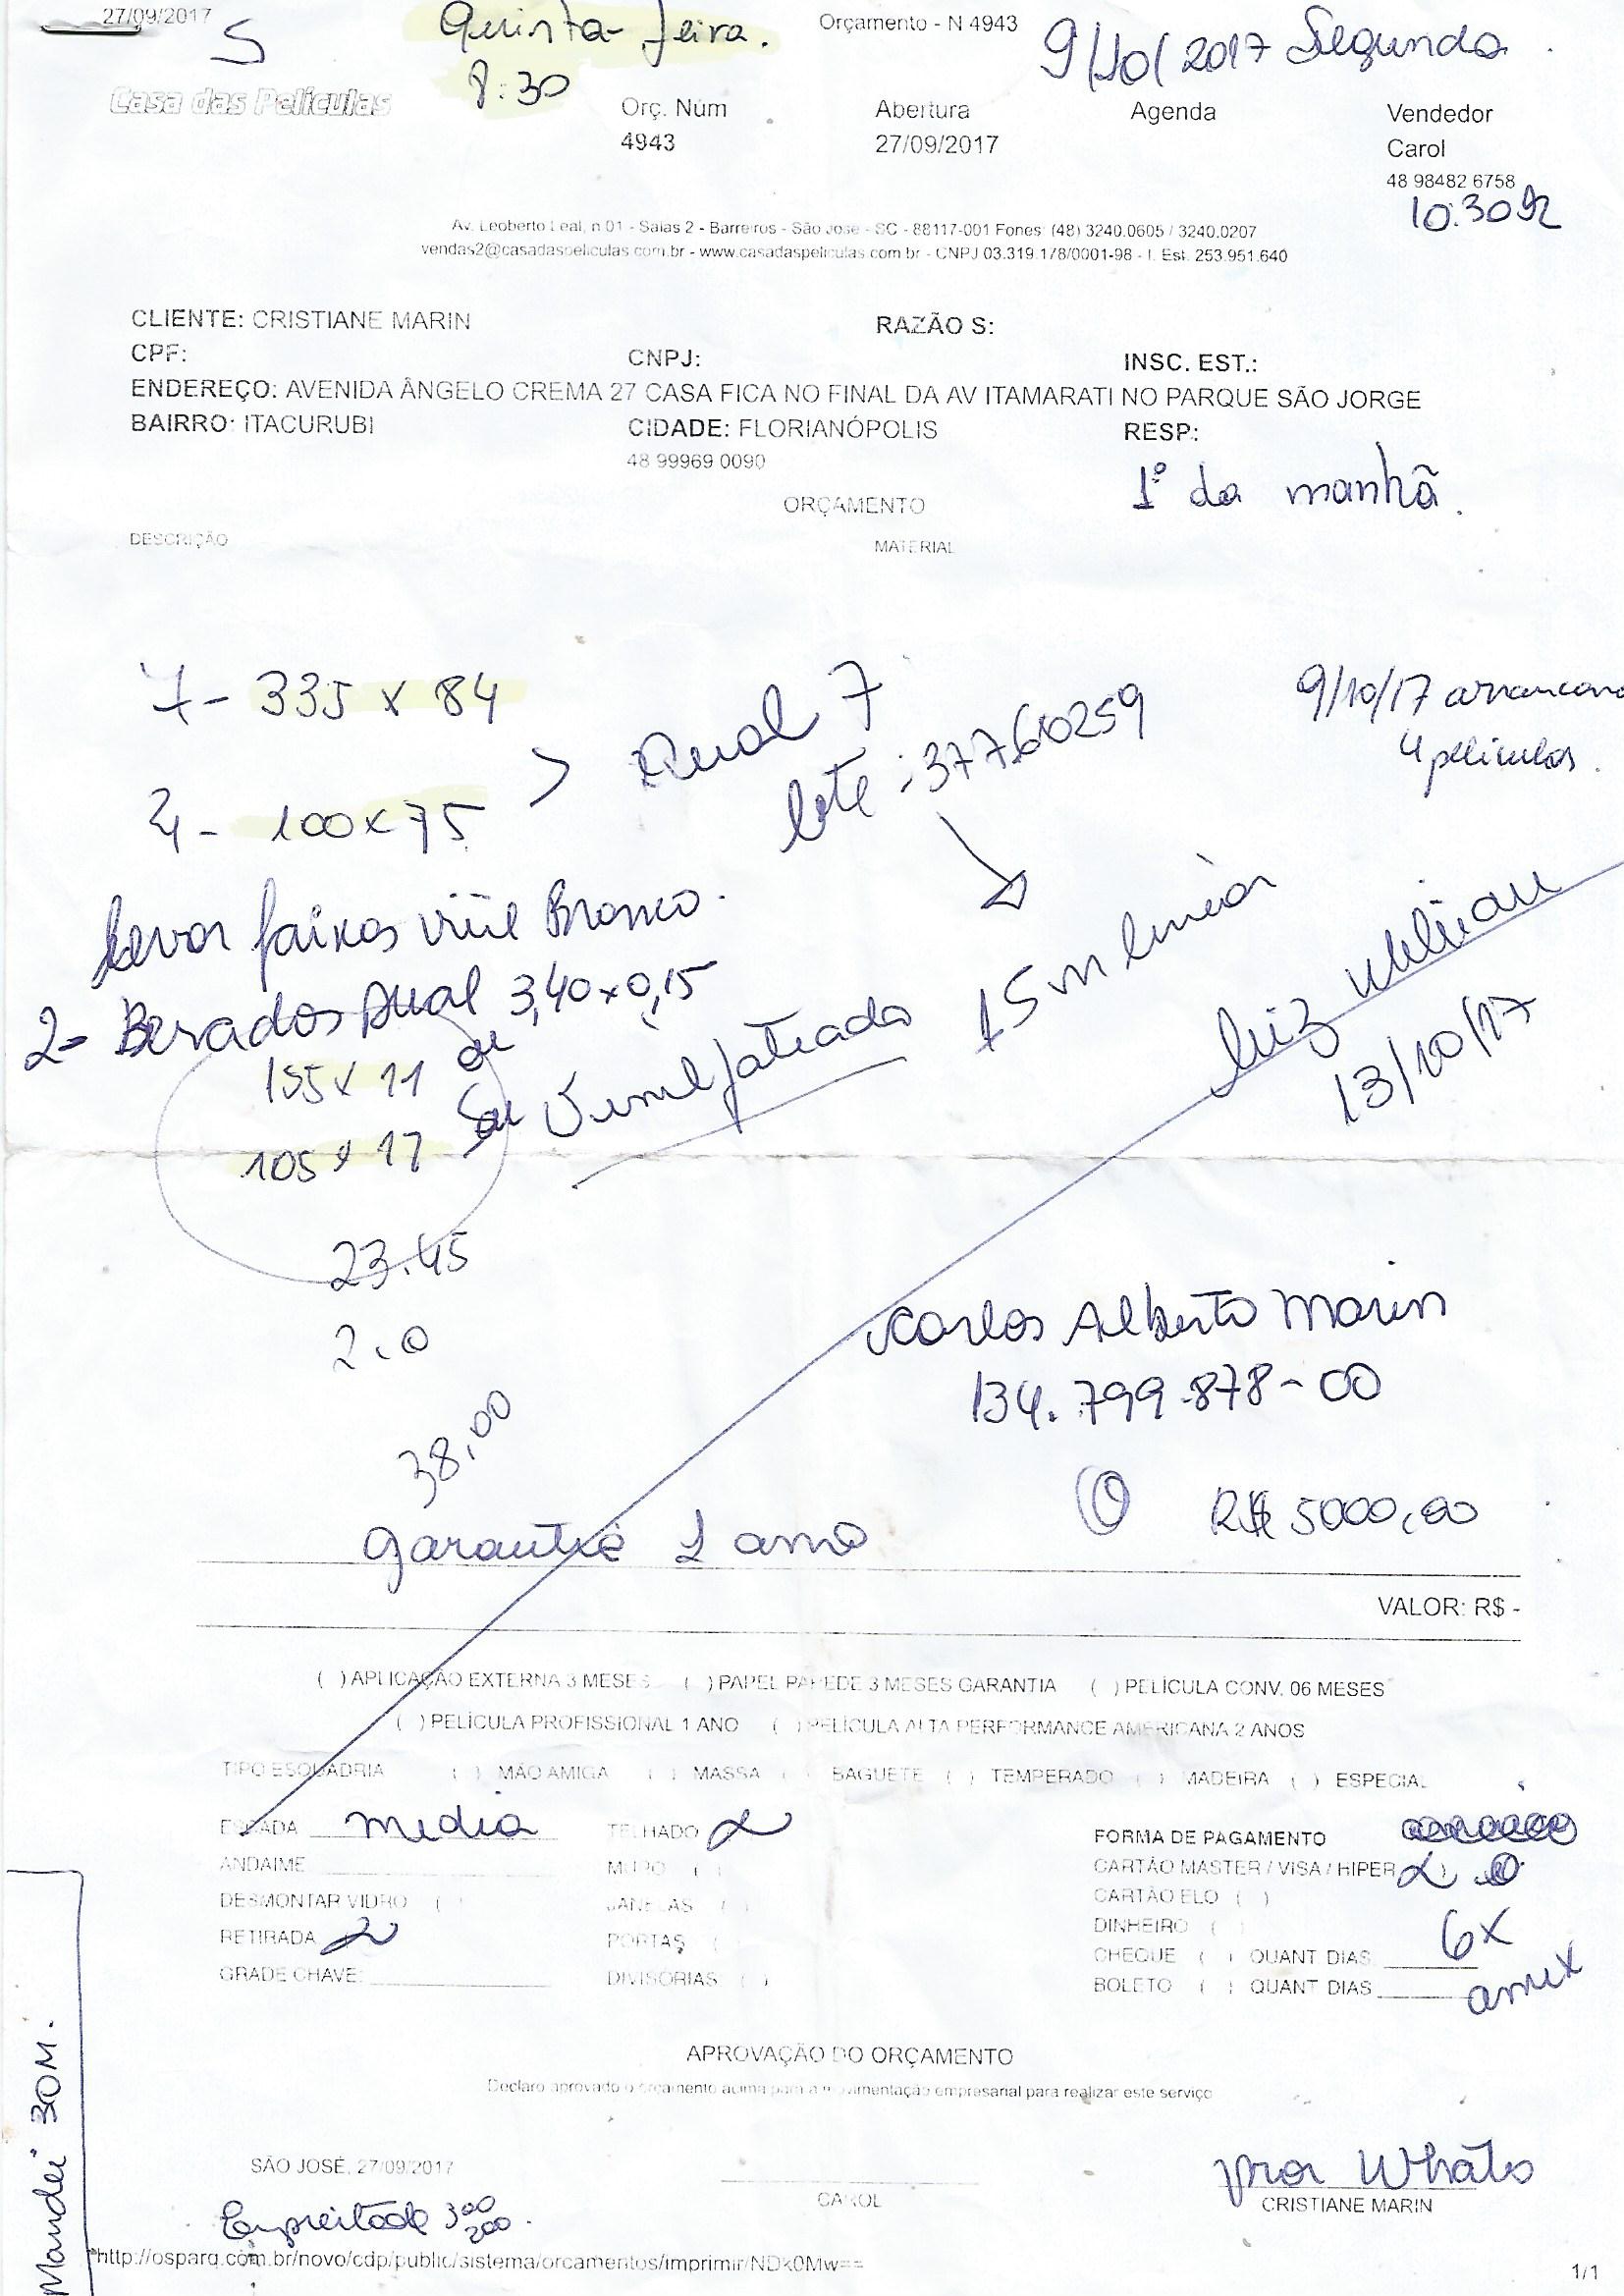 27/09/2017
Orçamento - N 4943
5
Quinta-feira.
8:30
9/10/2017 Segunda.
Casa das Películas
Orç. Núm
Abertura
Agenda
Vendedor
4943
27/09/2017
Carol
48 98482 6758
10:30
Av. Leoberto Leal, n 01 - Salas 2 - Barreiros - São José - SC - 88117-001 Fones: (48) 3240.0605 / 3240.0207
vendas2@casadaspeliculas.com.br - www.casadaspeliculas.com.br - CNPJ 03.319.178/0001-98 - I. Est. 253.951.640
CLIENTE: CRISTIANE MARIN
RAZÃO S:
CPF:
CNPJ:
INSC. EST.:
ENDEREÇO: AVENIDA ÂNGELO CREMA 27 CASA FICA NO FINAL DA AV ITAMARATI NO PARQUE SÃO JORGE
BAIRRO: ITACURUBI
CIDADE: FLORIANÓPOLIS
RESP:
48 99969 0090
1º da manhã.
ORÇAMENTO
DESCRIÇÃO
MATERIAL
7- 335 x 84
> Dual 7
lote: 37760259
9/10/17
4 películas.
100x75
levar faixas vinil Branco.
2- Dual 3,40x0,15
155x11
105x17
Vinil Jateado
15m linear
13/10/17
23.45
2.0
38,00
Carlos Alberto Marin
134.799.878-00
R$ 5000,00
garantia 1 ano
VALOR: R$ -
( ) APLICAÇÃO EXTERNA 3 MESES ( ) PAPEL PAREDE 3 MESES GARANTIA ( ) PELÍCULA CONV. 06 MESES
( ) PELÍCULA PROFISSIONAL 1 ANO ( ) PELÍCULA ALTA PERFORMANCE AMERICANA 2 ANOS
TIPO ESQUADRIA ( ) MÃO AMIGA ( ) MASSA ( ) BAGUETE ( ) TEMPERADO ( ) MADEIRA ( ) ESPECIAL
ESCADA media
TELHADO
FORMA DE PAGAMENTO
ANDAIME
MURO ( )
CARTÃO MASTER / VISA / HIPER
DESMONTAR VIDRO ( )
JANELAS ( )
CARTÃO ELO ( )
RETIRADA
PORTAS ( )
DINHEIRO ( )
6x
GRADE CHAVE:
DIVISÓRIAS ( )
CHEQUE ( ) QUANT DIAS
BOLETO ( ) QUANT DIAS
amex
APROVAÇÃO DO ORÇAMENTO
Declaro aprovado o orçamento acima para a movimentação empresarial para realizar este serviço
SÃO JOSÉ, 27/09/2017
CAROL
por Whats
CRISTIANE MARIN
Empreitada 300
200.
Mandei 30M.
http://osparq.com.br/novo/cdp/public/sistema/orcamentos/imprimir/NDk0Mw==
1/1